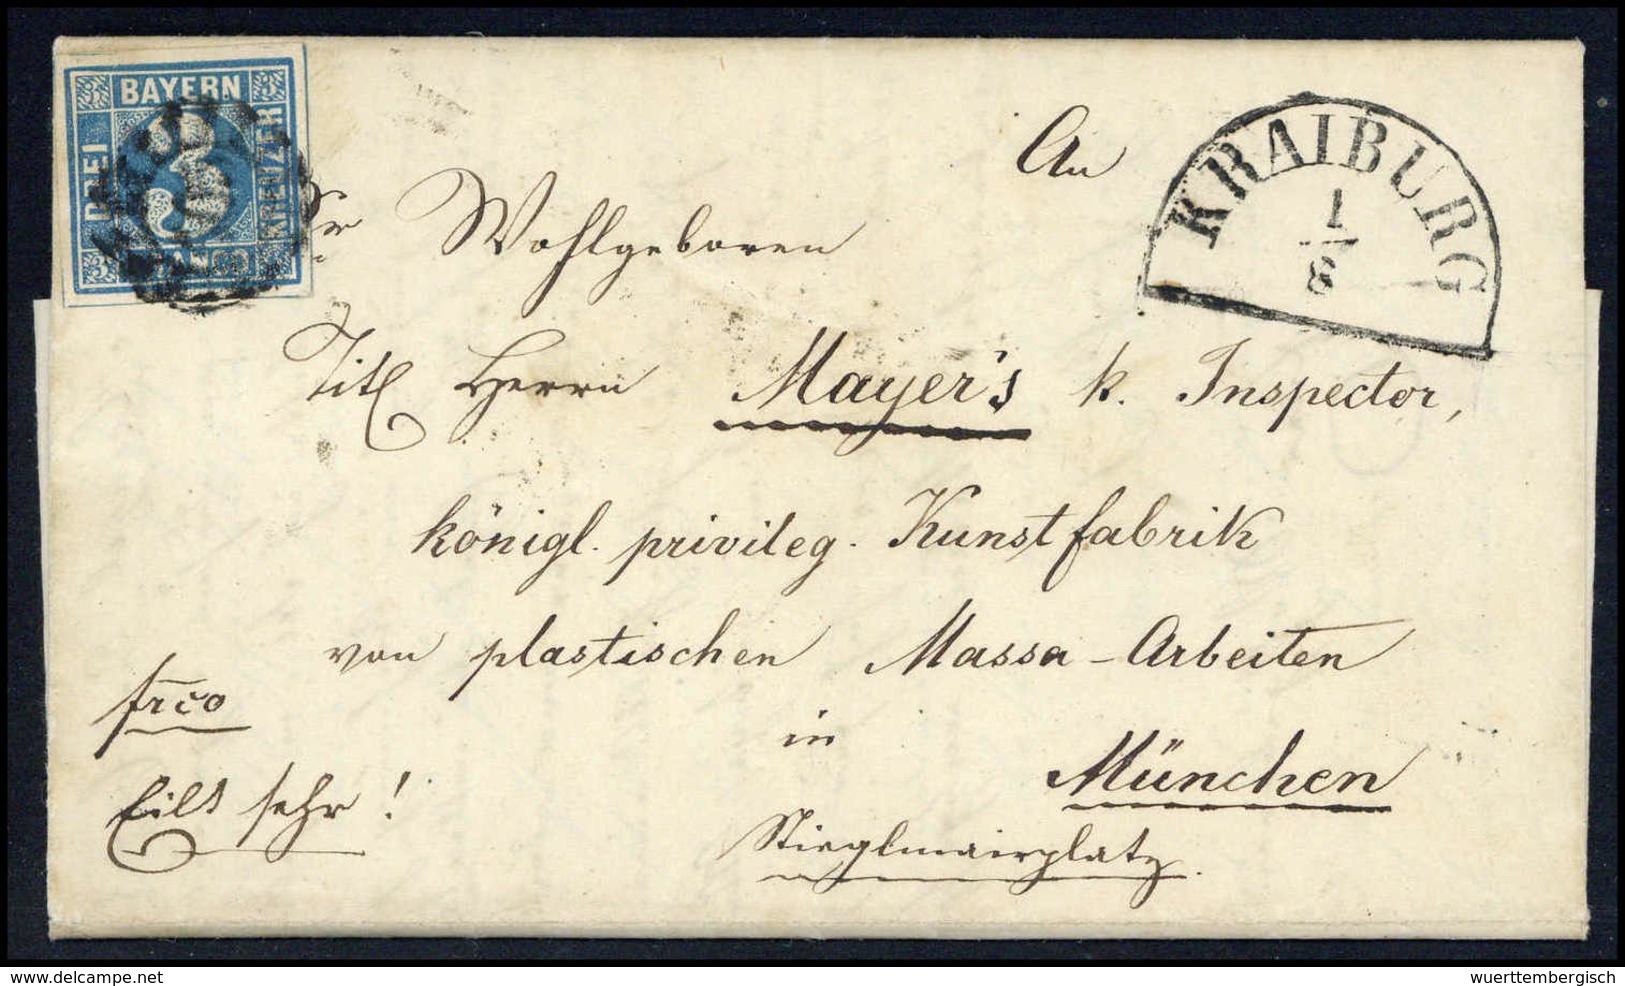 BAYERN
DREI
KREUZER
3
FRANCO
KRAIBURG
1
8
An
Sr Wohlgeboren
Titl Herrn Mayer's k. Inspector,
königl. privileg. Kunstfabrik
von plastischen Massa-Arbeiten
in
München
Stieglmairplatz.
frco
Eilt sehr!
www.delcampe.net
wuerttembergisch